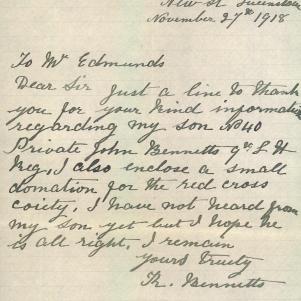 New St Queenstown
November 27th 1918
To Mr Edmunds
Dear Sir Just a line to thank
you for your kind informatio
regarding my son No 40
Private John Bennetts 9th L H
Reg, I also enclose a small
domation for the red cross
coiety, I have not heard from
my son yet but I hope he
is all right. I remain
yours truity
Bennetts